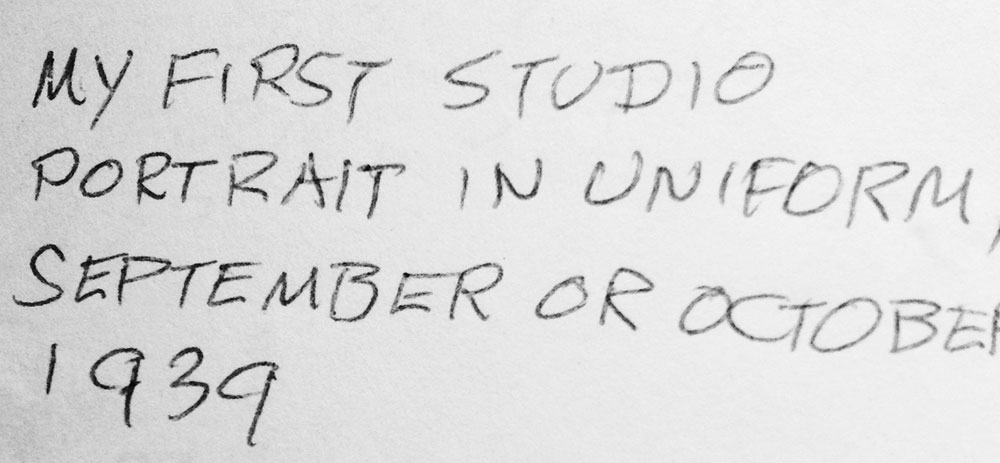 MY FIRST STUDIO
PORTRAIT IN UNIFORM,
SEPTEMBER OR OCTOBER
1939